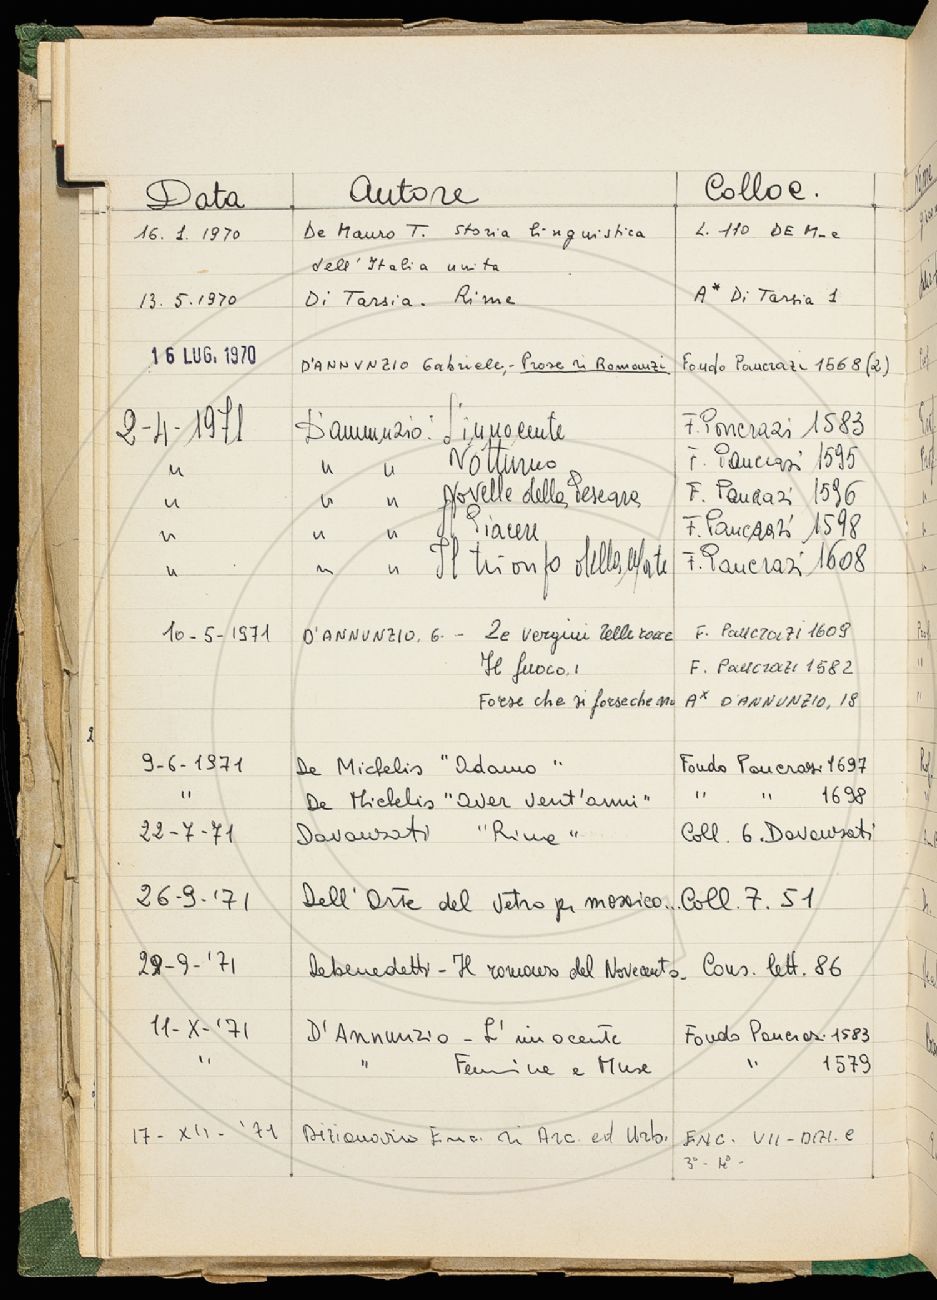 Data Autore Colloc.
16. 1. 1970 De Mauro T. Storia linguistica L. 110 DE M-e
dell'Italia unita
13. 5. 1970 Di Tarsia. Rime A* Di Tarsia 1
16 LUG. 1970 D'ANNUNZIO Gabriele,- Prose di Romanzi Fondo Pancrazi 1568 (2)
2-4-1971 D'annunzio: L'innocente F. Pancrazi 1583
" " " Notturno F. Pancrazi 1595
" " " Novelle della Pescara F. Pancrazi 1596
" " " Il Piacere F. Pancrazi 1598
" " " Il trionfo della Morte F. Pancrazi 1608
10-5-1971 D'ANNUNZIO, G. - Le vergini delle rocce F. Pancrazi 1609
Il fuoco. F. Pancrazi 1582
Forse che si forse che no A* D'ANNUNZIO, 18
9-6-1971 De Michelis "Adamo" Fondo Pancrazi 1697
" De Michelis "Aver vent'anni" " " 1698
22-7-71 Davanzati "Rime" Coll. 6. Davanzati
26-9-'71 Dell'Arte del vetro per mosaico... Coll. 7. 51
29-9-'71 Debenedetti - Il romanzo del Novecento - Cons. lett. 86
11-X-'71 D'Annunzio - L'innocente Fondo Pancrazi 1583
" " Femmine e Muse " 1579
17-XII-'71 Dizionario Enc. di Arc. ed Urb. ENC. VII-DIZI. e
3°- 4°-